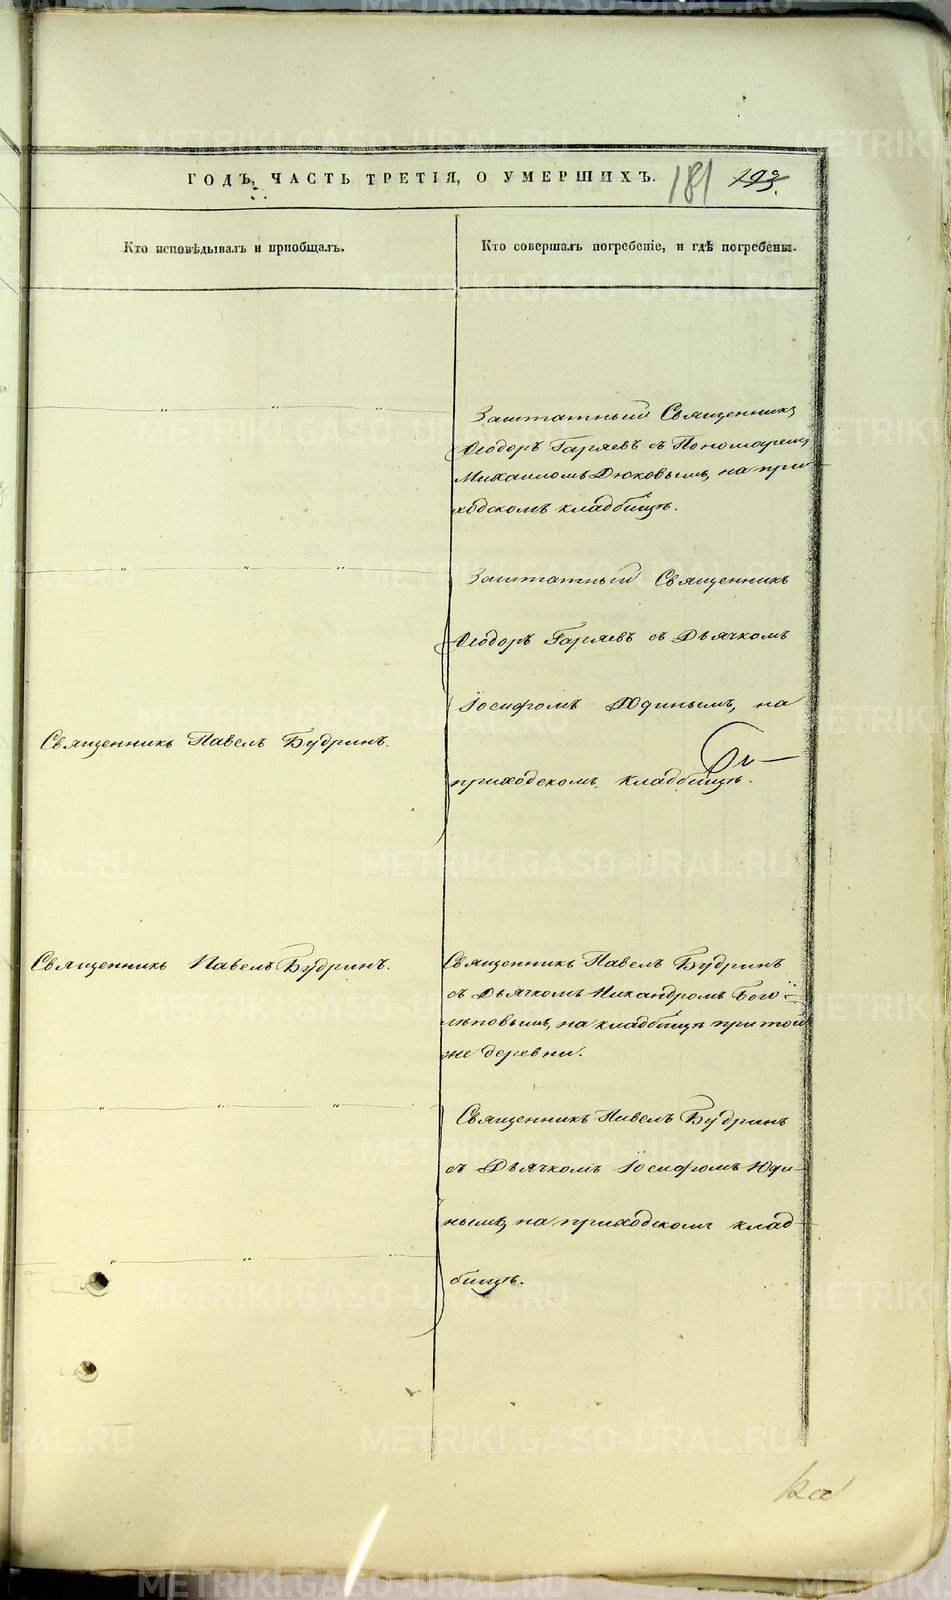 ГОДЪ, ЧАСТЬ ТРЕТІЯ, О УМЕРШИХЪ. 181
Кто исповѣдывалъ и пріобщалъ.
Кто совершалъ погребеніе, и гдѣ погребены.
Заштатный Священникъ
Ѳеодоръ Гаряевъ съ Пономаремъ
Михаиломъ Дюковымъ, на при-
ходскомъ кладбищѣ.
Заштатный Священникъ
Ѳеодоръ Гаряевъ съ Дьячкомъ
Іосифомъ Юдинымъ, на
Священникъ Павелъ Будринъ.
приходскомъ кладбищѣ.
Священникъ Павелъ Будринъ.
Священникъ Павелъ Будринъ
съ Дьячкомъ Никандромъ Бого-
лѣповымъ, на кладбищѣ при той
же деревни.
Священникъ Павелъ Будринъ
съ Дьячкомъ Іосифомъ Юди-
нымъ, на приходскомъ клад-
бищѣ.
METRIKI.GASO-URAL.RU